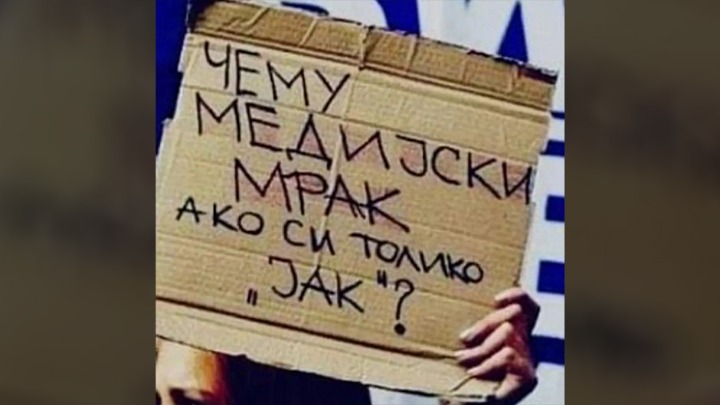 ЧЕМУ
МЕДИЈСКИ
МРАК
АКО СИ ТОЛИКО
„ЈАК"?